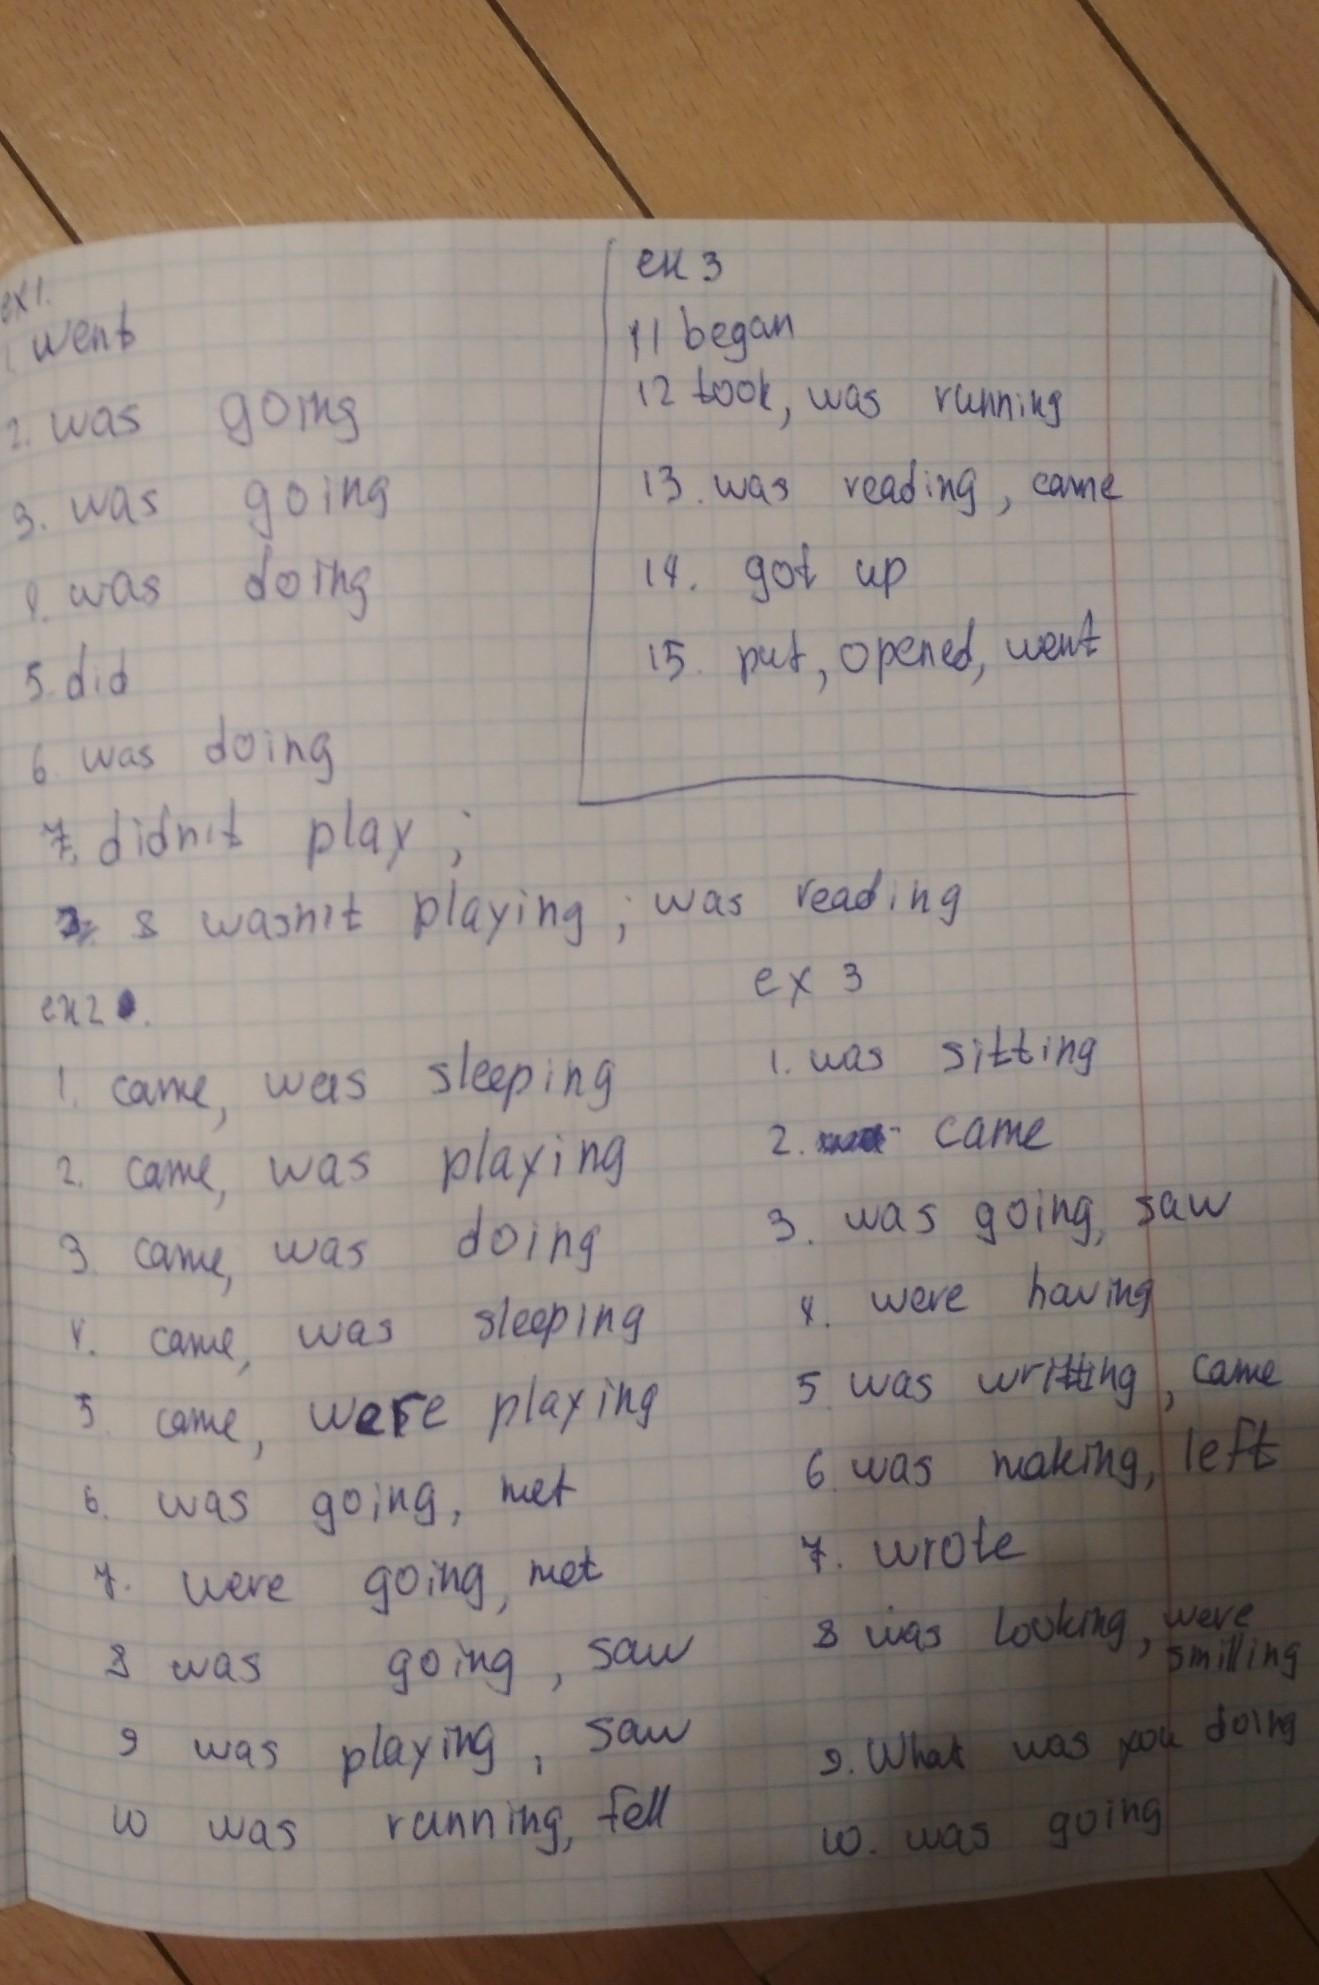 ex1.
1. went
2. was going
3. was going
4. was doing
5. did
6. was doing
7. didn't play ;
8 wasn't playing ; was reading
ex2.
1. came, was sleeping
2. came, was playing
3. came, was doing
4. came, was sleeping
5. came, were playing
6. was going, met
7. were going, met
8 was going, saw
9 was playing, saw
10 was running, fell
ex 3
11 began
12 took, was running
13. was reading, came
14. got up
15. put, opened, went
ex 3
1. was sitting
2. came
3. was going, saw
4. were having
5 was writting, came
6 was making, left
7. wrote
8 was looking, were
smilling
9. What was you doing
10. was going